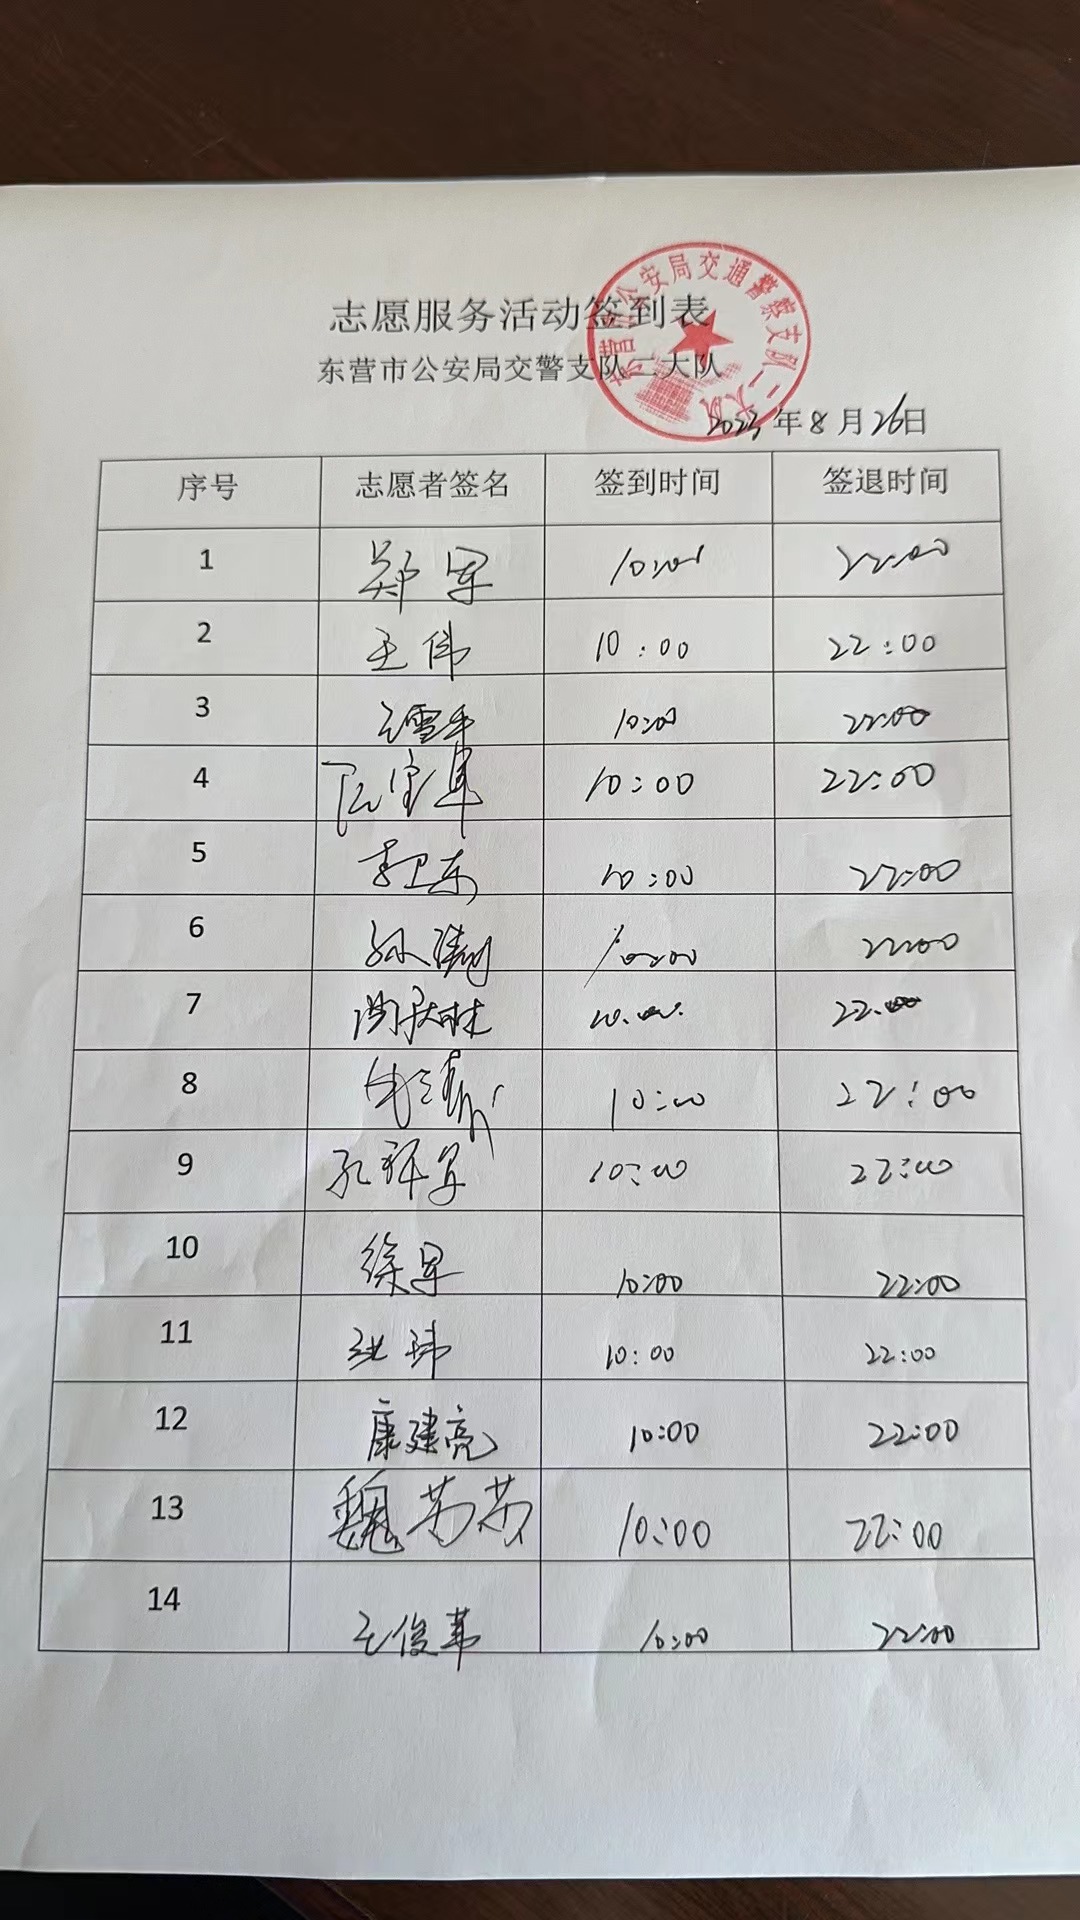 志愿服务活动签到表
东营市公安局交警支队二大队
东营市公安局交通警察支队二大队
2023年8月26日
序号 志愿者签名 签到时间 签退时间
1 郑军 10:00 22:00
2 王伟 10:00 22:00
3 王雪平 10:00 22:00
4 10:00 22:00
5 李卫东 10:00 22:00
6 10:00 22:00
7 10:00 22:00
8 10:00 22:00
9 孔祥军 10:00 22:00
10 徐军 10:00 22:00
11 张玮 10:00 22:00
12 康建亮 10:00 22:00
13 魏芳芳 10:00 22:00
14 王俊苇 10:00 22:00